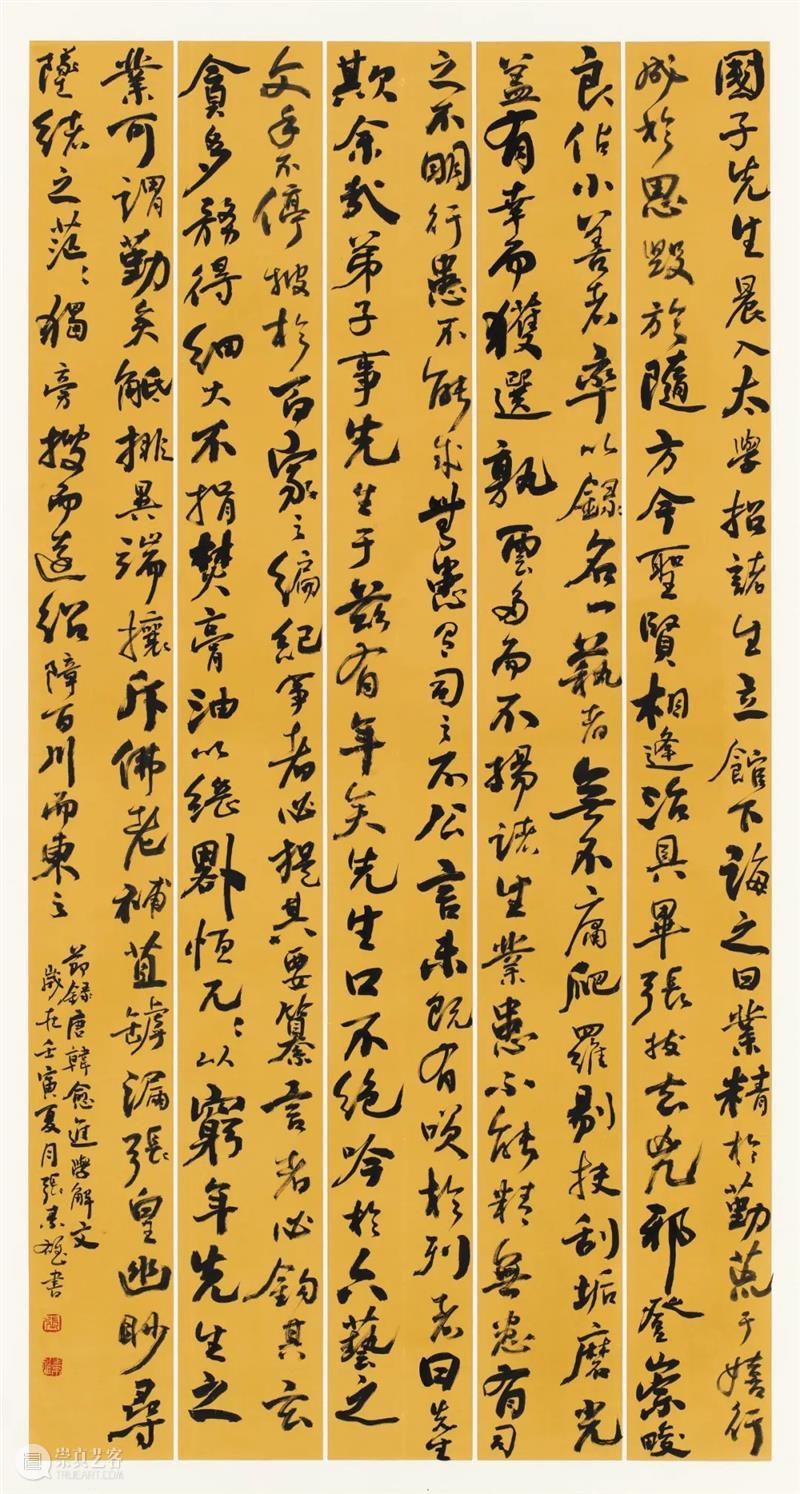 國子先生晨入太學招諸生立館下誨之曰業精於勤荒于嬉行
成於思毀於隨方今聖賢相逢治具畢張拔去兇邪登崇畯
良佔小善者率以錄名一藝者無不庸爬羅剔抉刮垢磨光
蓋有幸而獲選孰雲多而不揚諸生業患不能精無患有司
之不明行患不能成無患有司之不公言未既有咲於列者曰先生
欺余哉弟子事先生于茲有年矣先生口不絕吟於六藝之
文手不停披於百家之編紀事者必提其要纂言者必鉤其玄
貪多務得細大不捐焚膏油以繼晷恒兀〻以窮年先生之
業可謂勤矣觝排異端攘斥佛老補苴罅漏張皇幽眇尋
墜緒之茫〻獨旁搜而遠紹障百川而東之
節錄唐韓愈進學解文
歲在壬寅夏月張書
崇真艺客
TRUEART.COM